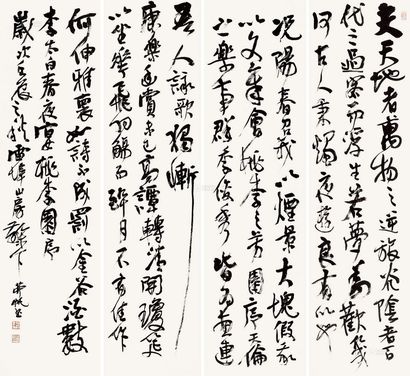 夫天地者萬物之逆旅光陰者百
代之過客而浮生若夢為歡幾
何古人秉燭夜遊良有以也
況陽春召我以煙景大塊假我
以文章會桃李之芳園序天倫
之樂事群季俊秀皆為惠連
吾人詠歌獨慚
康樂幽賞未已高譚轉清開瓊筵
以坐花飛羽觴而醉月不有佳作
何伸雅懷如詩不成罰以金谷酒數
李太白春夜宴桃李園序
歲次之於山房